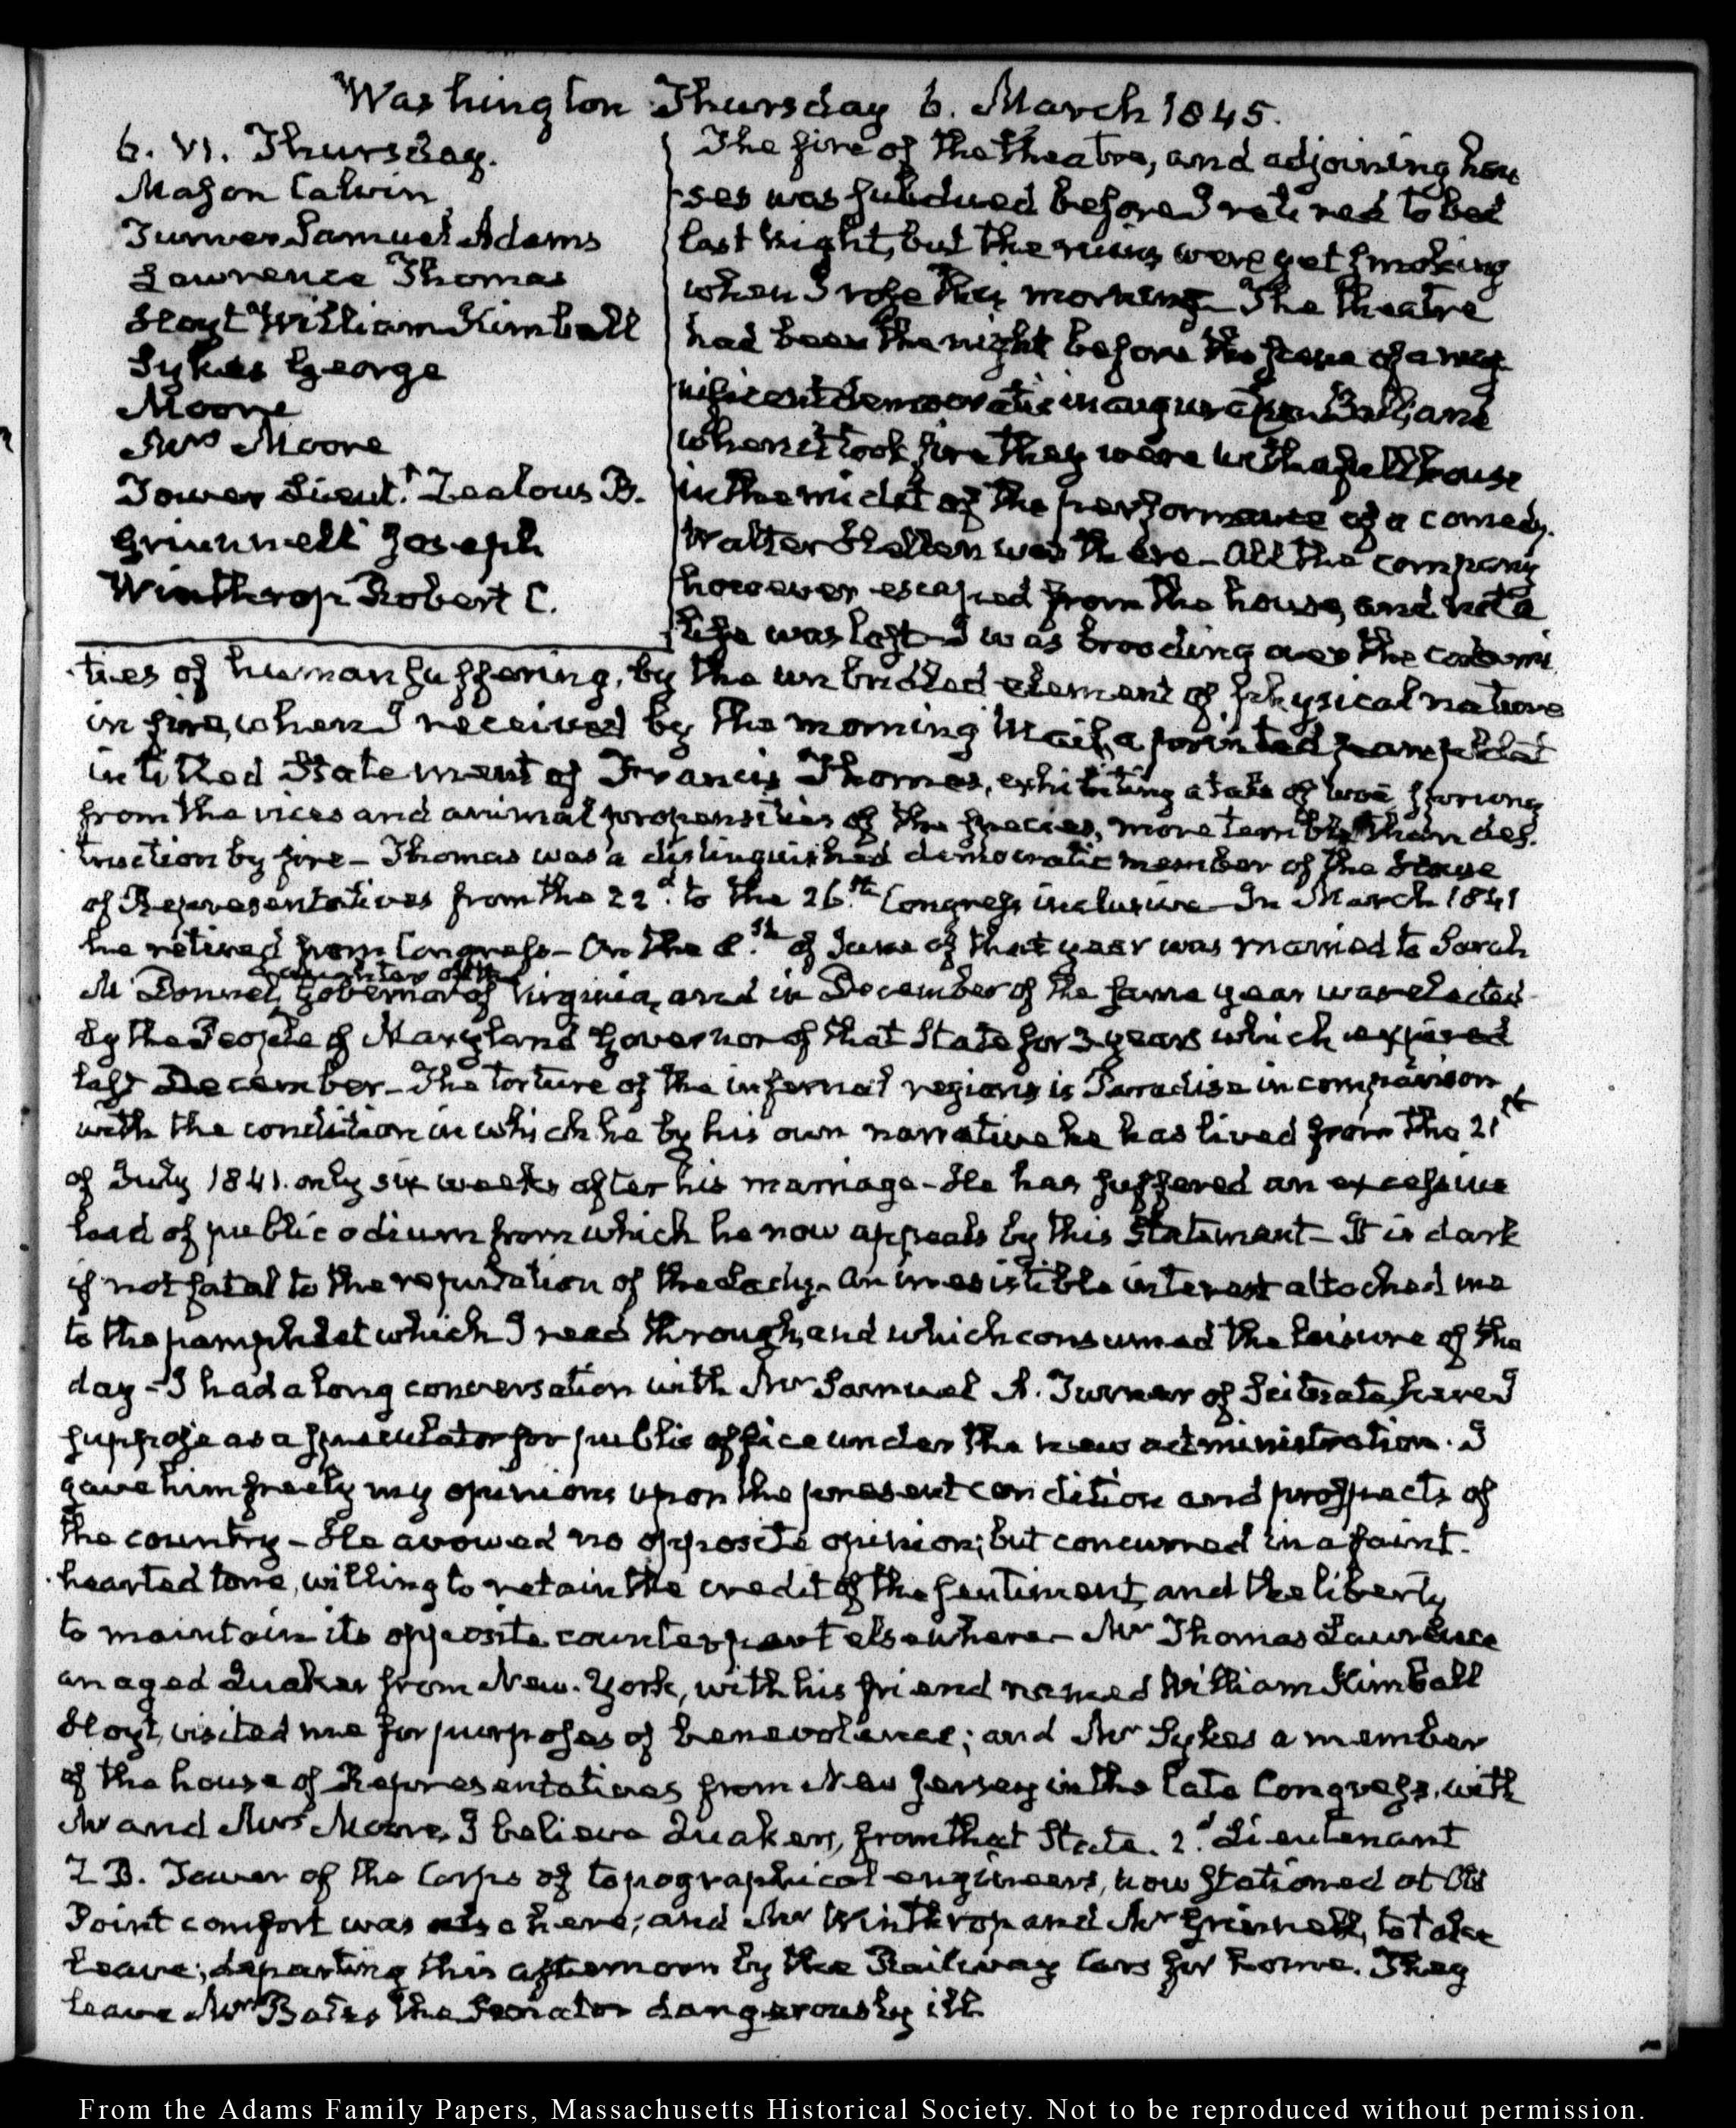 Washington Thursday 6. March 1845.
6. VI. Thursday.
Mason Calvin
Turner Samuel Adams
Lawrence Thomas
Hoyt William Kimball
Sykes George
Moore
Mrs Moore
Tower Lieut.t Zealous B.
Grinnell Joseph
Winthrop Robert C.
The fire of the theatre, and adjoining hou
ses was subdued before I retired to bed
last night, but the ruins were yet smoking
when I rose this morning— The theatre
had been the night before the scene of a mag-
nificent democratic inauguration Ball, and
when it took fire they were with a full house
in the midst of the performance of a comedy.
Walter Hellen was there— All the company
however escaped from the house, and not a
life was lost— I was brooding over the calami
ties of human suffering, by the unbridled element of physical nature
in fire, when I received by the morning Mail, a printed pamphlet
intitled Statement of Francis Thomas, exhibiting a tale of woe, sprung
from the vices and animal propensities of the species, more terrible than des-
truction by fire— Thomas was a distinguished democratic member of the House
of Representatives from the 22.d to the 26.th Congress inclusive— In March 1841
he retired from Congress— On the 8.th of June of that year was married to Sarah
daughter of the
McDowel, Governor of Virginia, and in December of the same year was elected
by the People of Maryland Governor of that State for 3 years which expired
last December— The torture of the infernal regions is Parradise in comparison
with the condition in which he by his own narrative he has lived from the 21st
of July 1841. only six weeks after his marriage— He has suffered an excessive
load of public odium from which he now appeals by this Statement— It is dark
if not fatal to the reputation of the Lady— An irresistible interest attached me
to the pamphlet which I read through, and which consumed the leisure of the
day— I had a long conversation with Mr Samuel A. Turner of Scituate, here I
suppose as a speculator for public office under the new administration. I
gave him freely my opinions upon the present condition and prospects of
the country— He avowed no opposite opinion; but concurred in a faint-
hearted tone, willing to retain the credit of the sentiment, and the liberty
to maintain its opposite counterpart elsewhere— Mr Thomas Lawrence
an aged Quaker from New-York, with his friend named William Kimball
Hoyt, visited me for purposes of benevolence; and Mr Sykes a member
of the house of Representatives from New Jersey in the late Congress, with
Mr and Mrs Moore, I believe Quakers, from that State. 2.d Lieutenant
Z B. Tower of the Corps of topographical engineers, now stationed at Old
Point comfort was also here; and Mr Winthrop and Mr Grinnell, to take
leave; departing this afternoon by the Railway Cars for home. They
leave Mr Bates the Senator dangerously ill.
From the Adams Family Papers, Massachusetts Historical Society. Not to be reproduced without permission.